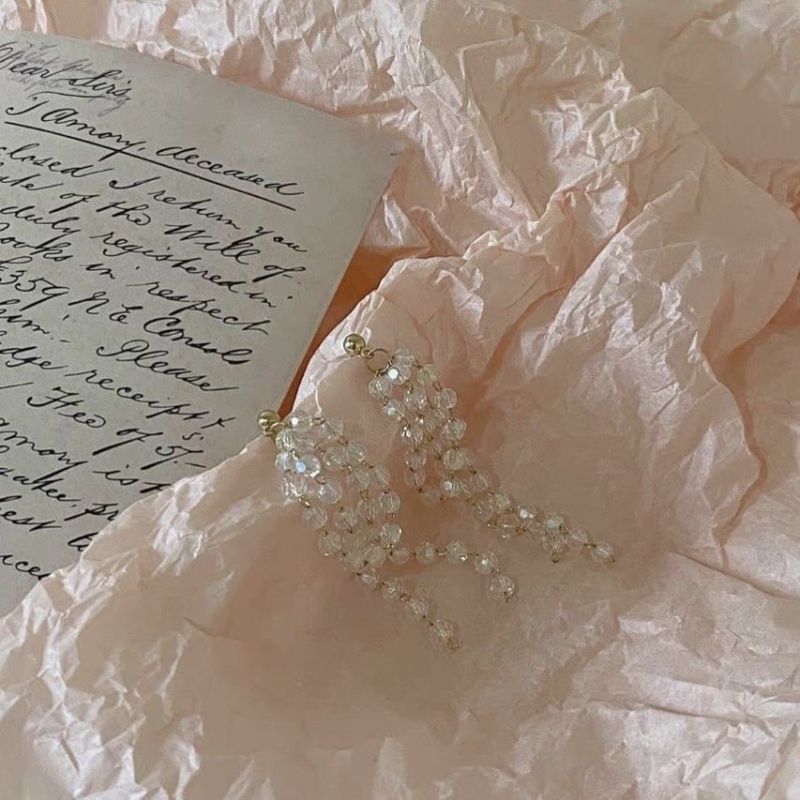 Dear Sirs
J Amory, deceased
closed I return you
ate of the Will of
duly registered in
books in respect
£359 N E Consols
him. Please
edge receipt &
Fee of 5/-
amory is
take
est to